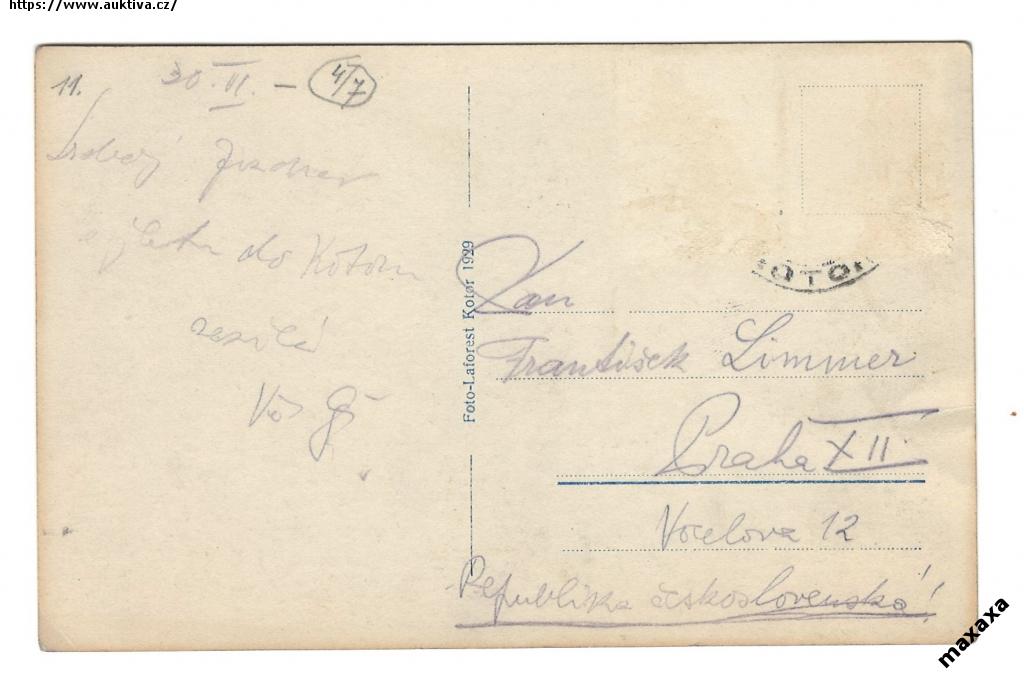 https://www.auktiva.cz/
11.
30. VI. — 4/7
Srdečný pozdrav
z výletu do Kotoru
zasílá
Váš
Foto-Laforest Kotor 1929
KOTOR
Pan
František Limmer
Praha XII
Vocelova 12
Republika československá!
maxaxa